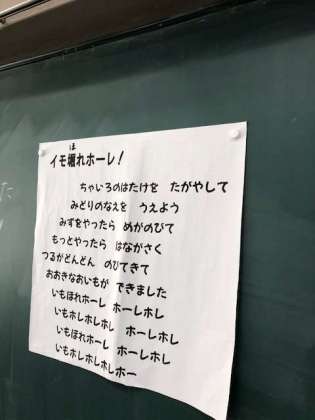 イモ掘れホーレ！
ちゃいろのはたけを たがやして
みどりのなえを うえよう
みずをやったら めがのびて
もっとやったら はながさく
つるがどんどん のびてきて
おおきなおいもが できました
いもほれホーレ ホーレホレ
いもホレホレホレ ホーレホレ
いもほれホーレ ホーレホレ
いもホレホレホレホー